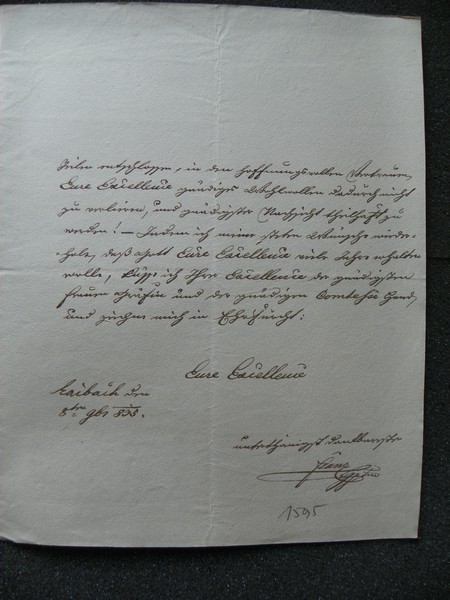 Zeilen entschlossen, in den hoffnungsvollen Vertrauen,
Eure Excellence gnädiges Wohlwollen dadurch nicht
zu verlieren, und gnädigster Nachsicht theilhaft zu
werden! – Indem ich meine steten Wünsche wieder-
hole, daß Gott Eure Excellence viele Jahre erhalten
wolle, küsse ich Ihre Excellence der gnädigsten
Frauen Gräfin und der gnädigen Comtesse Hand,
und zeichne mich in Ehrfurcht:
Eure Excellence
Laibach den
8ten 9br 835.
unterthänigst dankbarster
Franz
1595